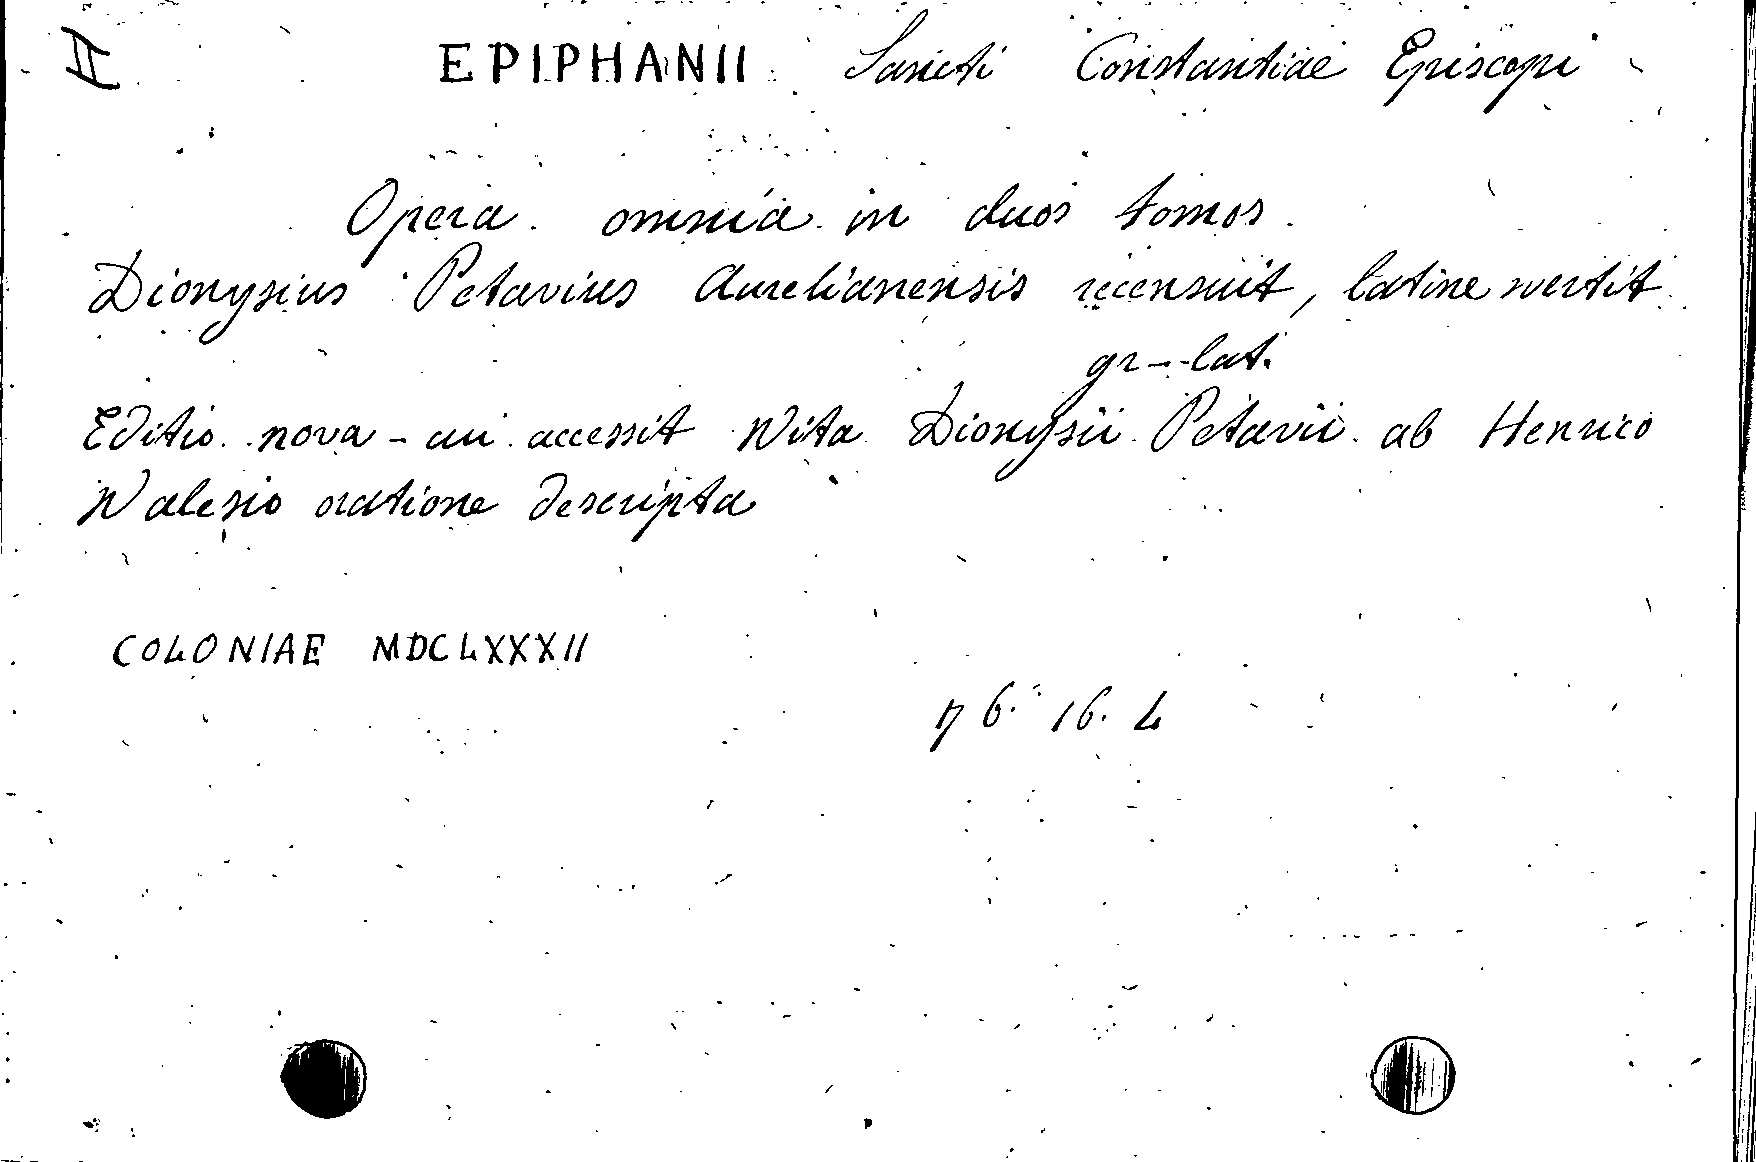 II EPIPHANII Sancti Constantiae Episcopi
Opera omnia in duos tomos
Dionysius Petavius Aurelianensis recensuit, latine vertit
gr-lat.
Editio nova - cui accessit Vita Dionysii Petavii ab Henrico
Valesio oratione descripta
COLONIAE MDCLXXXII
76. 16. 4